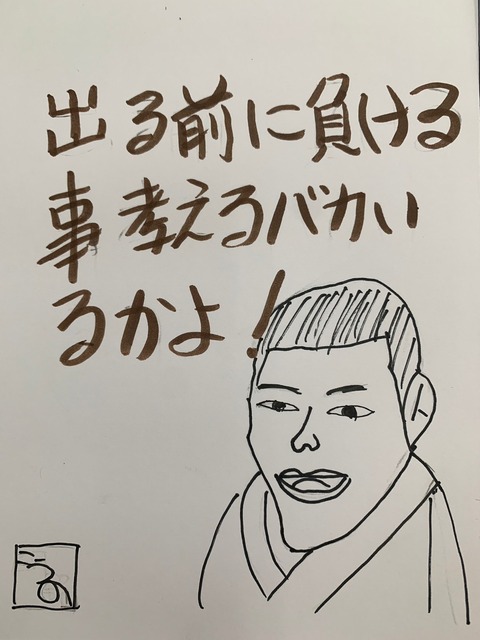 出る前に負ける
事考えるバカい
るかよ！